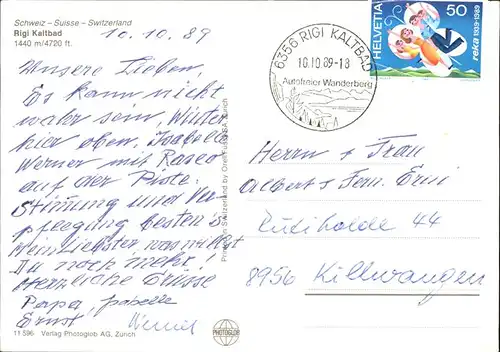 Schweiz – Suisse – Switzerland
Rigi Kaltbad
1440 m/4720 ft.
10.10.89
Unsere Lieben,
Es kann nicht
wahr sein, Winter
hier oben, Isabelle
Werner mit Rasco
auf der Piste.
Stimmung und Ver-
pflegung bestens
Mein Liebster was willst
Du noch mehr!
Herzliche Grüsse
Papa, Isabelle
Ernst, Werner
11 596 Verlag Photoglob AG, Zürich
Printed in Switzerland by Orell Füssli SA, Zürich
PHOTOGLOB
6356 RIGI KALTBAD
10.10.89-18
Autofreier Wanderberg
HELVETIA 50
reka 1939-1989
Herrn + Frau
Albert + Fam. Erni
Rütihalde 44
8956 Killwangen